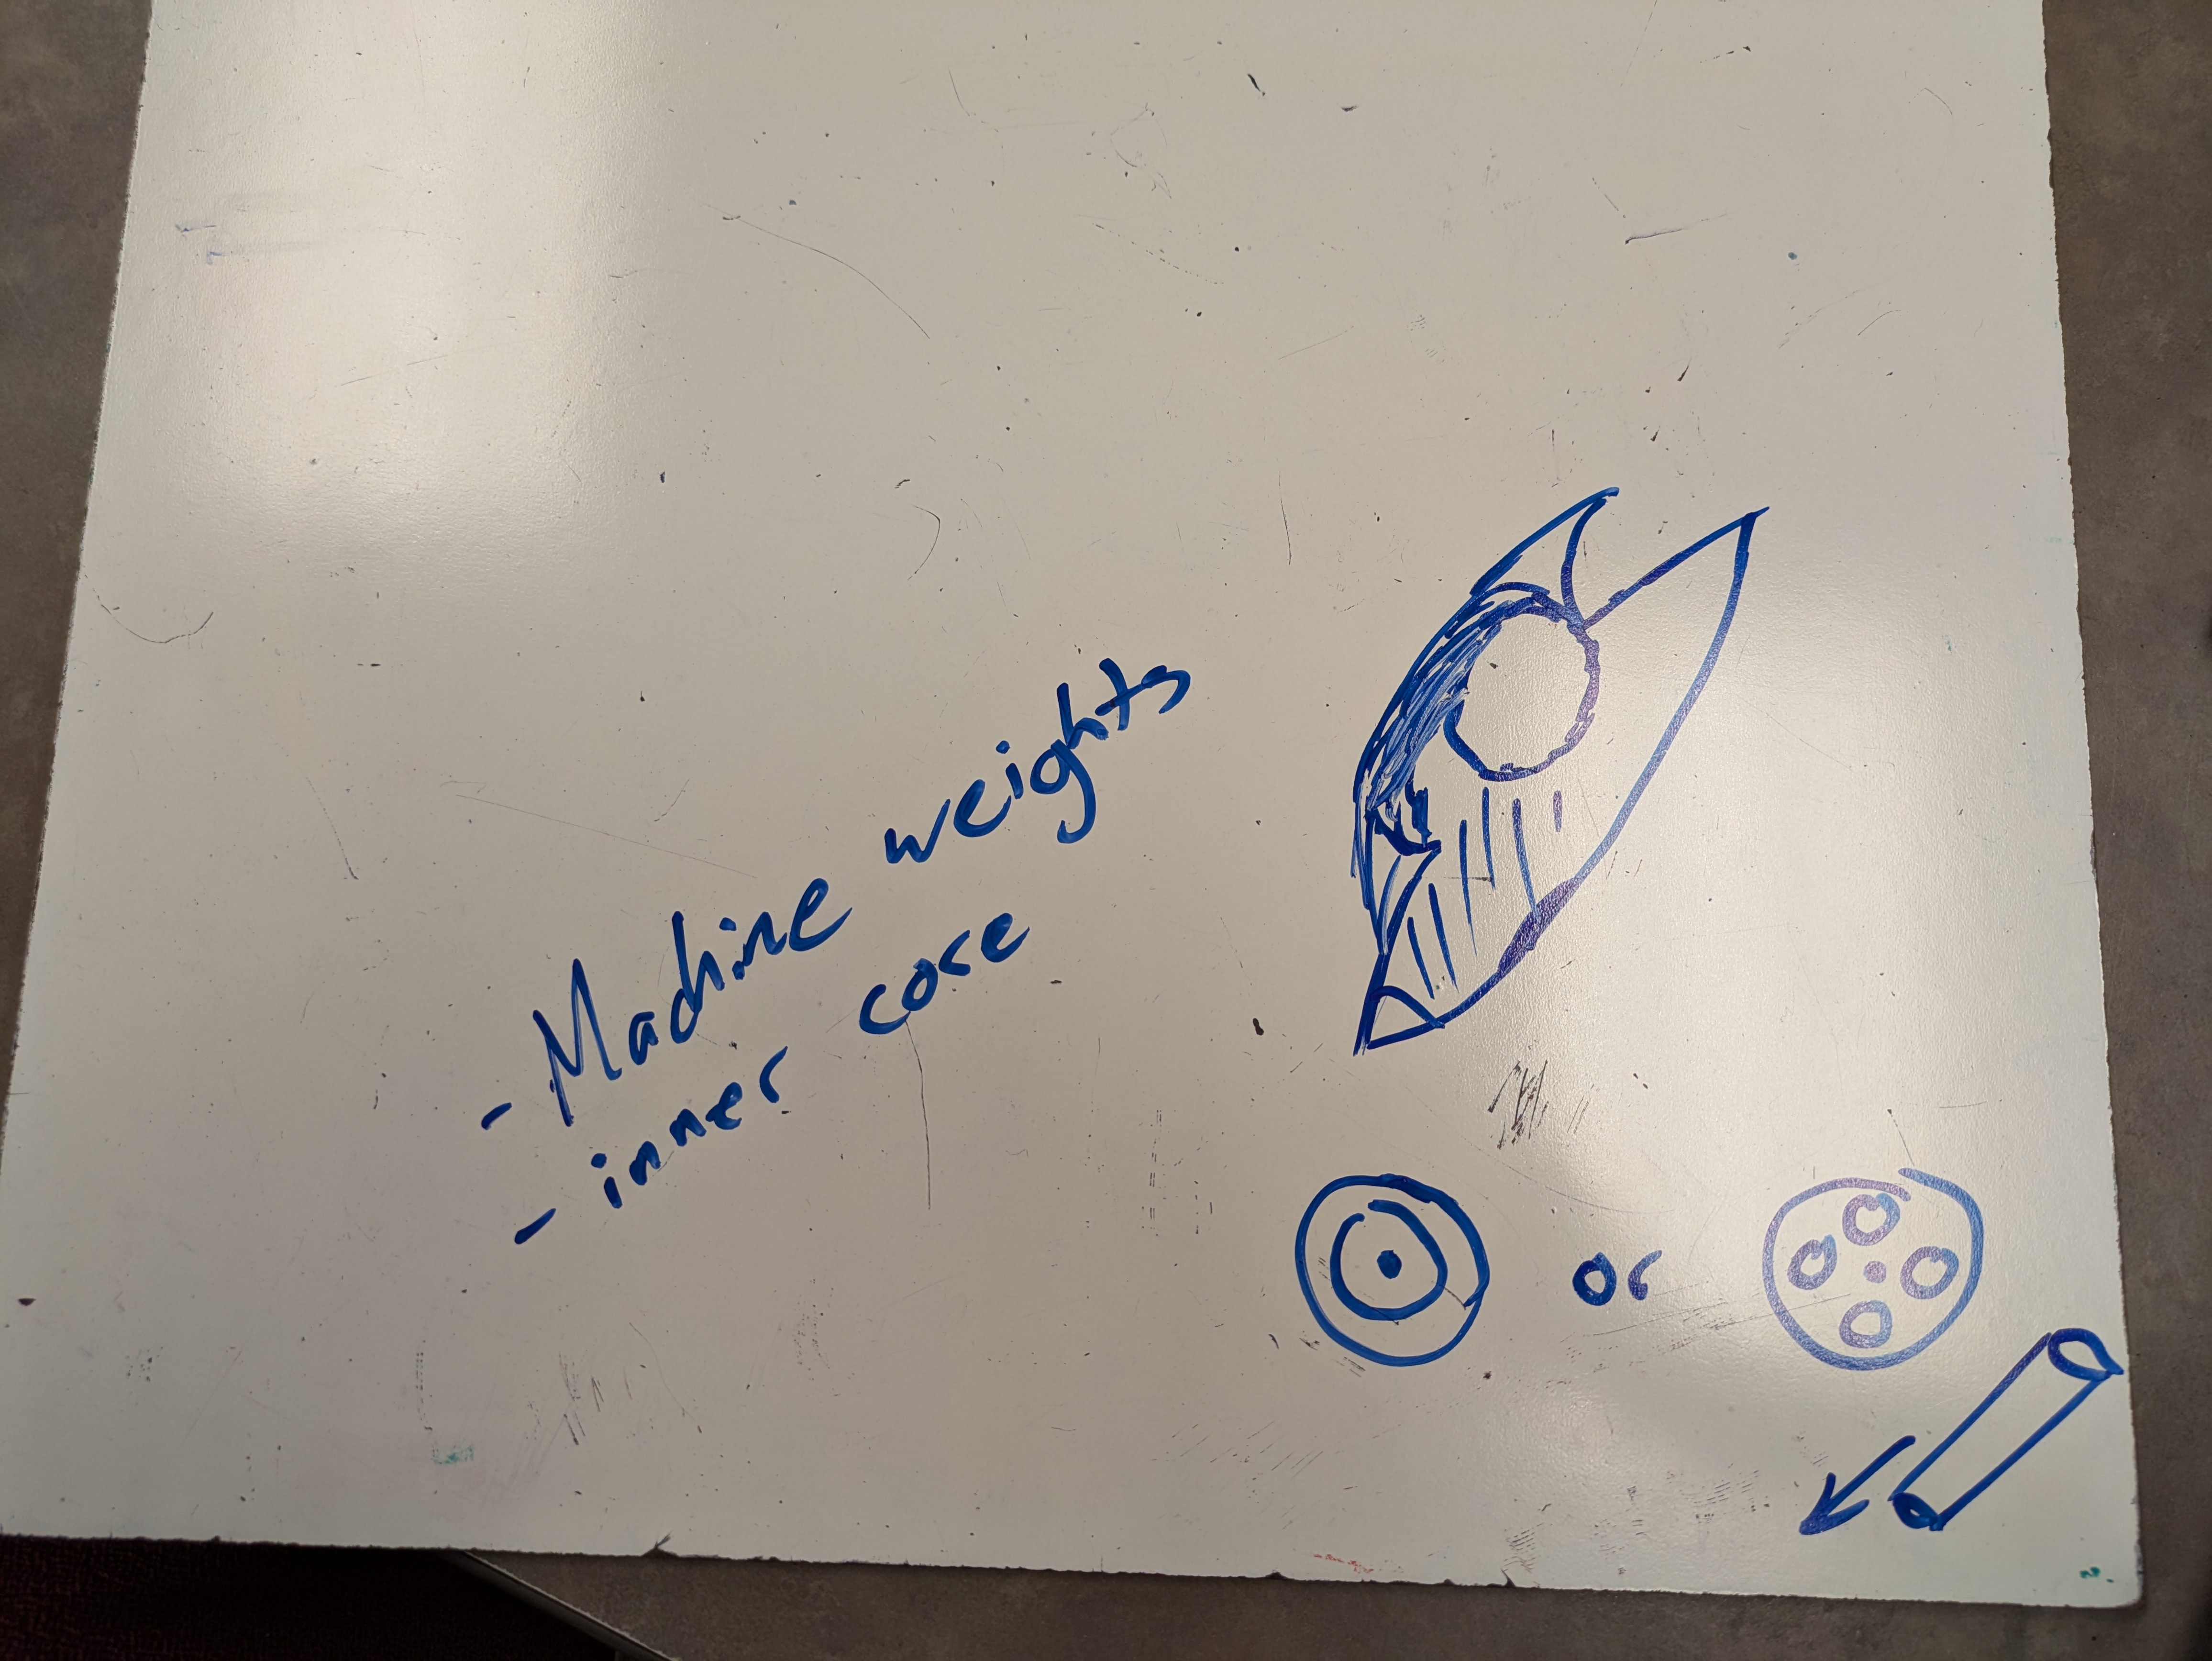 - Machine weights
- inner core
or